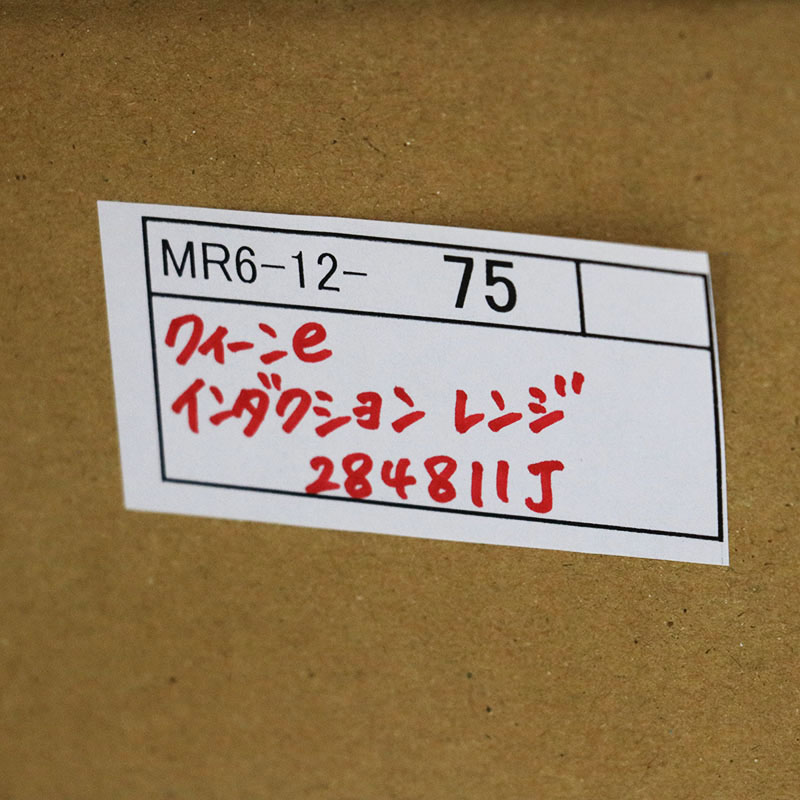 MR6-12- 75
クィーンe
インダクション レンジ
284811J